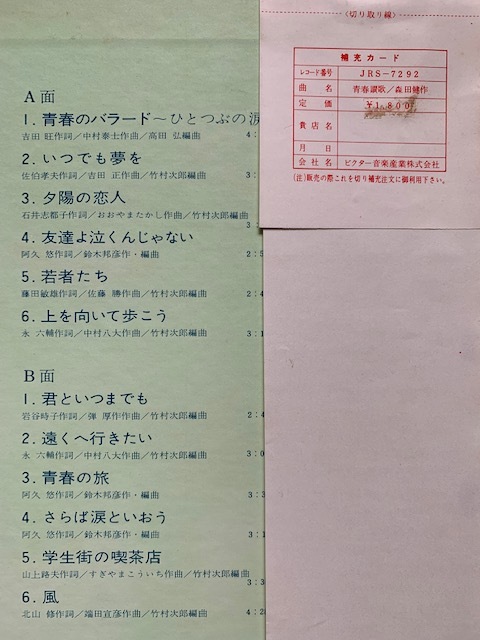 〈切り取り線〉
補充カード
レコード番号 JRS-7292
曲名 青春讃歌/森田健作
定価 ¥1,800
貴店名
月日
会社名 ビクター音楽産業株式会社
(注)販売の際これを切り補充注文に御利用下さい。
A面
1. 青春のバラード〜ひとつぶの涙
吉田 旺作詞/中村泰士作曲/高田 弘編曲 4:
2. いつでも夢を
佐伯孝夫作詞/吉田 正作曲/竹村次郎編曲
3. 夕陽の恋人
石井志都子作詞/おおやまたかし作曲/竹村次郎編曲
3:
4. 友達よ泣くんじゃない
阿久 悠作詞/鈴木邦彦作・編曲 2:5
5. 若者たち
藤田敏雄作詞/佐藤 勝作曲/竹村次郎編曲 2:4
6. 上を向いて歩こう
永 六輔作詞/中村八大作曲/竹村次郎編曲 3:1
B面
1. 君といつまでも
岩谷時子作詞/弾 厚作作曲/竹村次郎編曲 2:4
2. 遠くへ行きたい
永 六輔作詞/中村八大作曲/竹村次郎編曲 3:0
3. 青春の旅
阿久 悠作詞/鈴木邦彦作・編曲 3:3
4. さらば涙といおう
阿久 悠作詞/鈴木邦彦作・編曲 3:1
5. 学生街の喫茶店
山上路夫作詞/すぎやまこういち作曲/竹村次郎編曲
3:3
6. 風
北山 修作詞/端田宣彦作曲/竹村次郎編曲 4:2